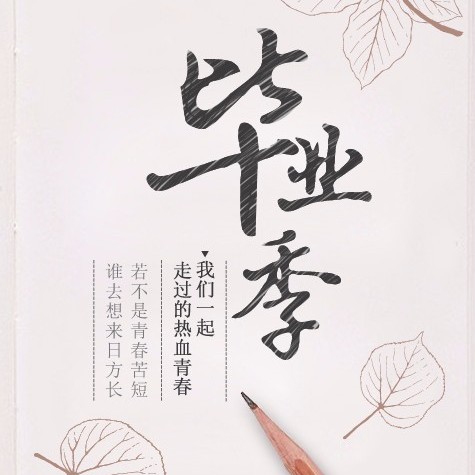 毕业季
我们一起
走过的热血青春
若不是青春苦短
谁去想来日方长